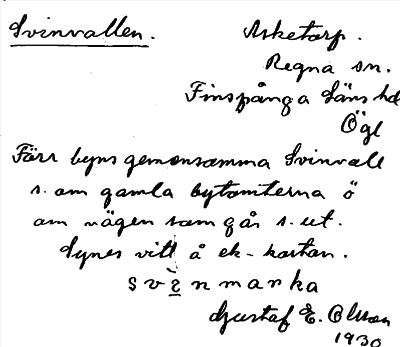 Svinvallen. Asketorp.
Regna sn.
Finspånga läns hd
Ögl
Förr byns gemensamma Svinvall
s. om gamla bytomterna ö
om vägen som går s. ut.
Synes vitt å ek-kartan.
svinmarka
Gustaf E. Olsson
1930